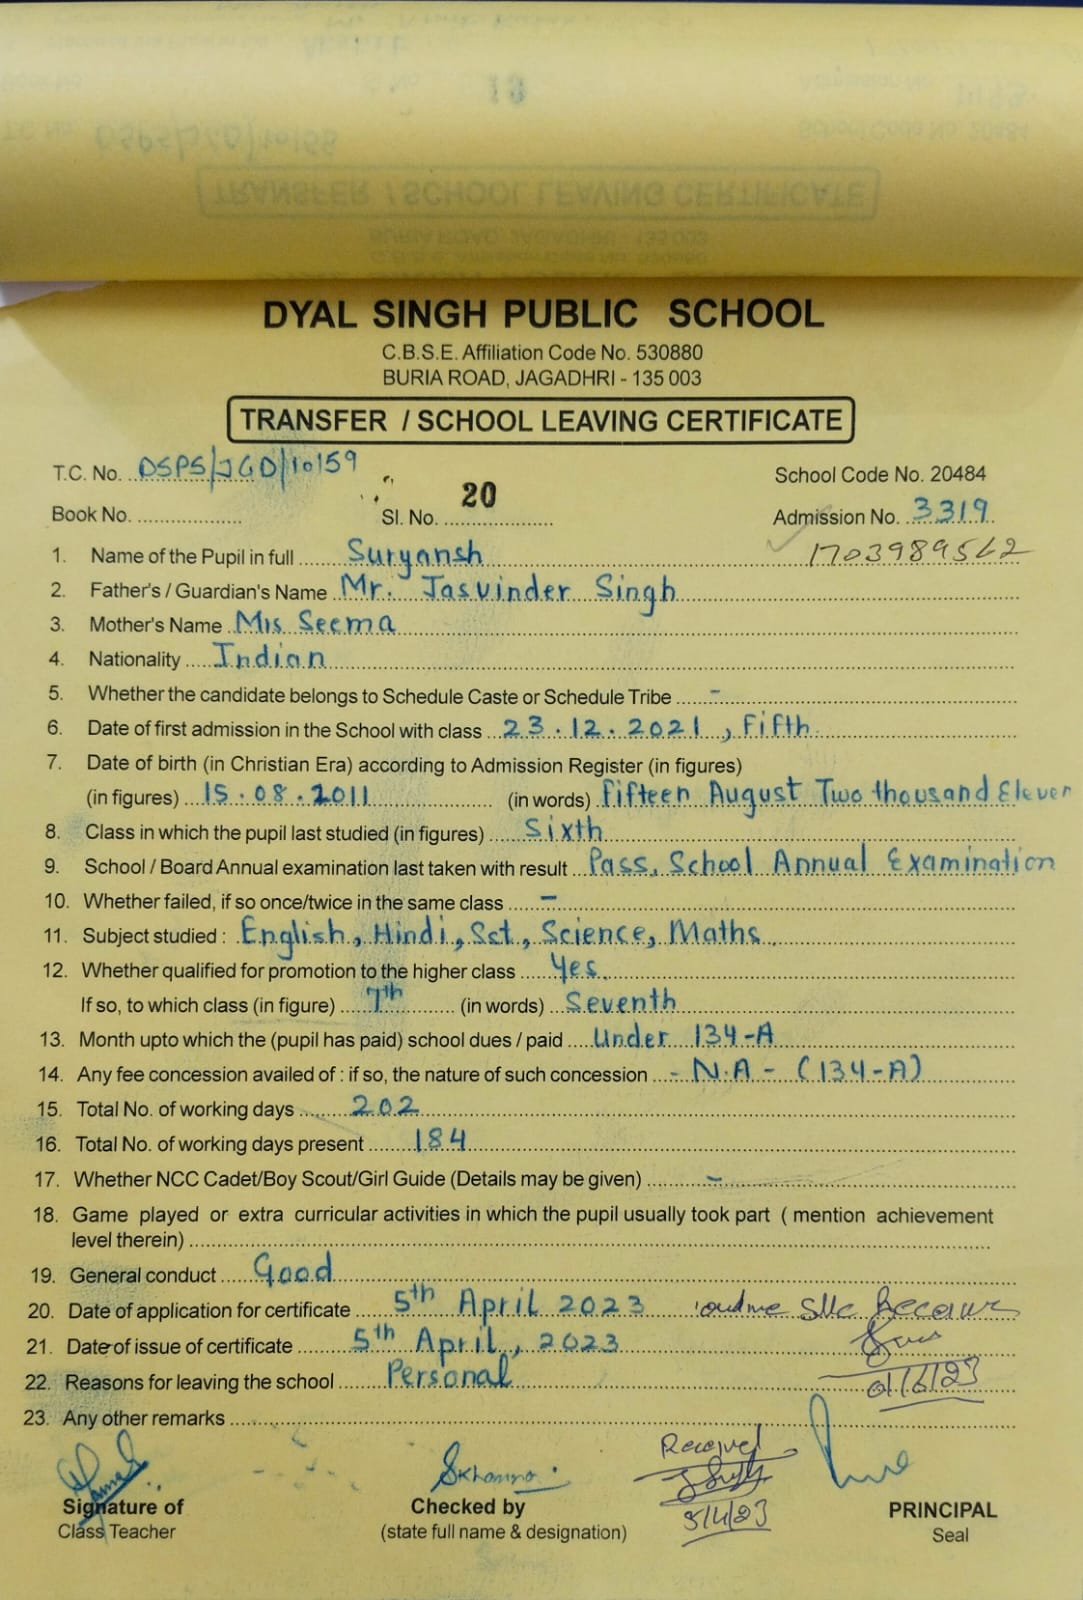 DYAL SINGH PUBLIC SCHOOL
C.B.S.E. Affiliation Code No. 530880
BURIA ROAD, JAGADHRI - 135 003
TRANSFER / SCHOOL LEAVING CERTIFICATE
T.C. No. DSPS/JGD/10159 School Code No. 20484
Book No. Sl. No. 20 Admission No. 3319
1. Name of the Pupil in full Suryansh
2. Father's / Guardian's Name Mr. Jasvinder Singh
3. Mother's Name Mrs Seema
4. Nationality Indian
5. Whether the candidate belongs to Schedule Caste or Schedule Tribe -
6. Date of first admission in the School with class 23.12.2021, Fifth
7. Date of birth (in Christian Era) according to Admission Register (in figures)
(in figures) 15.08.2011 (in words) Fifteen August Two thousand Eleven
8. Class in which the pupil last studied (in figures) Sixth
9. School / Board Annual examination last taken with result Pass, School Annual Examination
10. Whether failed, if so once/twice in the same class -
11. Subject studied : English, Hindi, Sst, Science, Maths
12. Whether qualified for promotion to the higher class Yes
If so, to which class (in figure) 7th (in words) Seventh
13. Month upto which the (pupil has paid) school dues / paid Under 134-A
14. Any fee concession availed of : if so, the nature of such concession - N.A - (134-A)
15. Total No. of working days 202
16. Total No. of working days present 184
17. Whether NCC Cadet/Boy Scout/Girl Guide (Details may be given) -
18. Game played or extra curricular activities in which the pupil usually took part ( mention achievement
level therein)
19. General conduct Good
20. Date of application for certificate 5th April 2023
21. Date of issue of certificate 5th April, 2023
22. Reasons for leaving the school Personal
23. Any other remarks
Received
5/4/23
Signature of Checked by PRINCIPAL
Class Teacher (state full name & designation) Seal